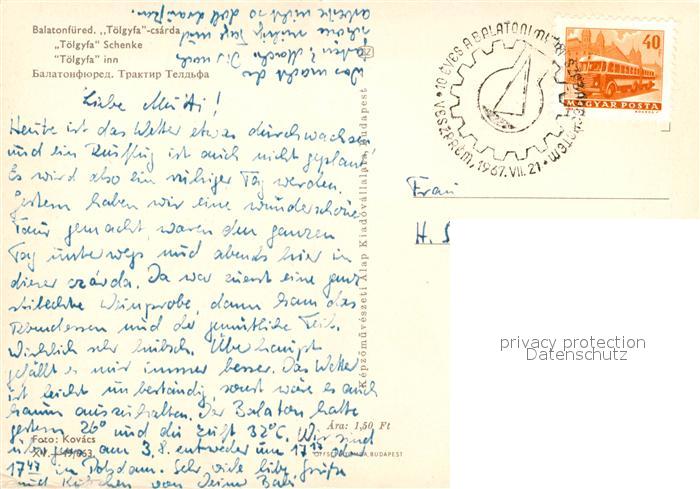 Balatonfüred. „Tölgyfa"-csárda
"Tölgyfa" Schenke
"Tölgyfa" inn
Балатонфюред. Трактир Телдьфа
Liebe Mutti!
Heute ist das Wetter etwas durchwachsen
und ein Ausflug ist auch nicht geplant.
Es wird also ein ruhiger Tag werden.
Gestern haben wir eine wunderschöne
Tour gemacht, waren den ganzen
Tag unterwegs und abends hier in
dieser csárda. Da war zuerst eine ganz
stilechte Weinprobe, dann kam das
Abendessen und der gemütliche Teil.
Wirklich sehr hübsch. Überhaupt
gefällt es mir immer besser. Das Wetter
ist leicht unbeständig, sonst wäre es auch
kaum auszuhalten. Der Balaton hatte
gestern 26° und die Luft 32°C. Wir sind
übrigens am 3.8. entweder um 17 17
17 47 in Potsdam. Sehr viele liebe Grüße
und Küßchen von Deiner
Foto: Kovács
XV.—19/663
Ára: 1,50 Ft
OFFSET BUDAPEST
Képzőművészeti Alap Kiadóvállalata, Budapest
Was macht der
Mach Dir noch
schöne ruhige Tage und
arbeite nicht so doll draußen.
10 ÉVES A BALATONI
VESZPRÉM, 1967. VII. 21
40
MAGYAR POSTA
Frau
H. S
privacy protection
Datenschutz